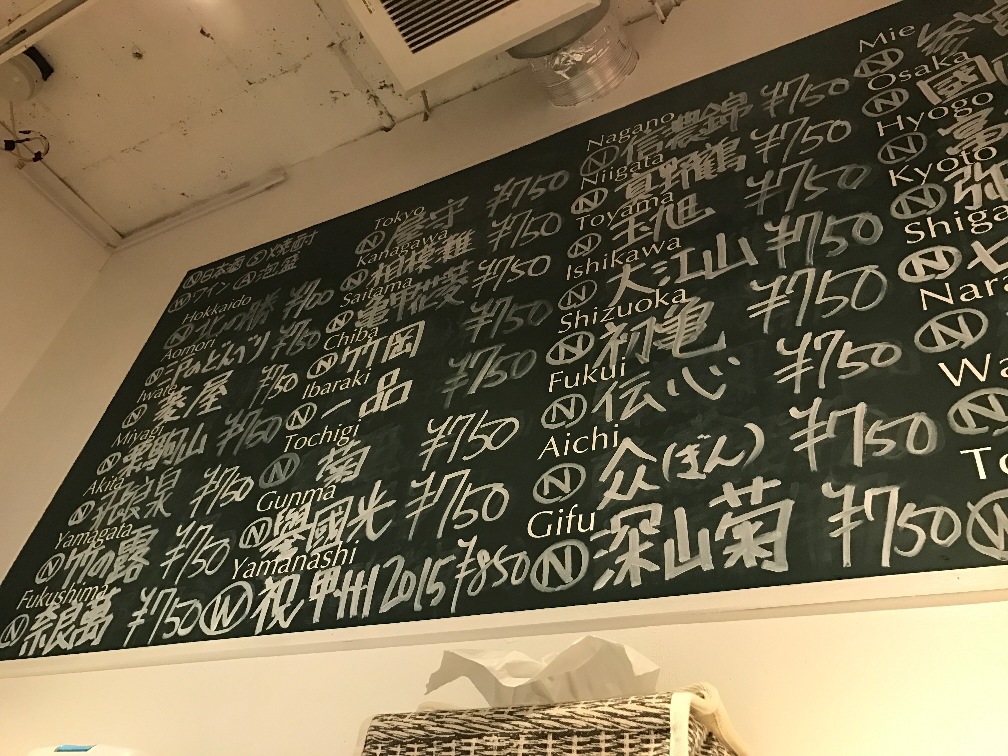 Ⓝ日本酒 Ⓢ焼酎
Ⓦワイン Ⓐ泡盛
Hokkaido
Ⓝ
Aomori
Ⓝ ¥750
Iwate
Ⓝ菱屋 ¥750
Miyagi
Ⓝ栗駒山 ¥750
Akita
Ⓝ ¥750
Yamagata
Ⓝ竹の露 ¥750
Fukushima
Ⓝ奈良萬 ¥750
Tokyo
Ⓝ屋守 ¥750
Kanagawa
Ⓝ相模灘 ¥750
Saitama
Ⓝ亀甲花菱 ¥750
Chiba
Ⓝ竹岡 ¥750
Ibaraki
Ⓝ一品 ¥750
Tochigi
Ⓝ菊 ¥750
Gunma
Ⓝ譽國光 ¥750
Yamanashi
Ⓦ祝甲州2015 ¥850
Nagano
Ⓝ信濃錦 ¥750
Niigata
Ⓝ真野鶴 ¥750
Toyama
Ⓝ玉旭 ¥750
Ishikawa
Ⓝ大江山 ¥750
Shizuoka
Ⓝ初亀 ¥750
Fukui
Ⓝ伝心 ¥750
Aichi
Ⓝ众(ぼん) ¥750
Gifu
Ⓝ深山菊 ¥750
Mie
Ⓝ
Osaka
Ⓝ國
Hyogo
Ⓝ富
Kyoto
Ⓝ弥
Shiga
Ⓝ七
Nara
Ⓝ
Wa
Ⓝ
To
Ⓝ